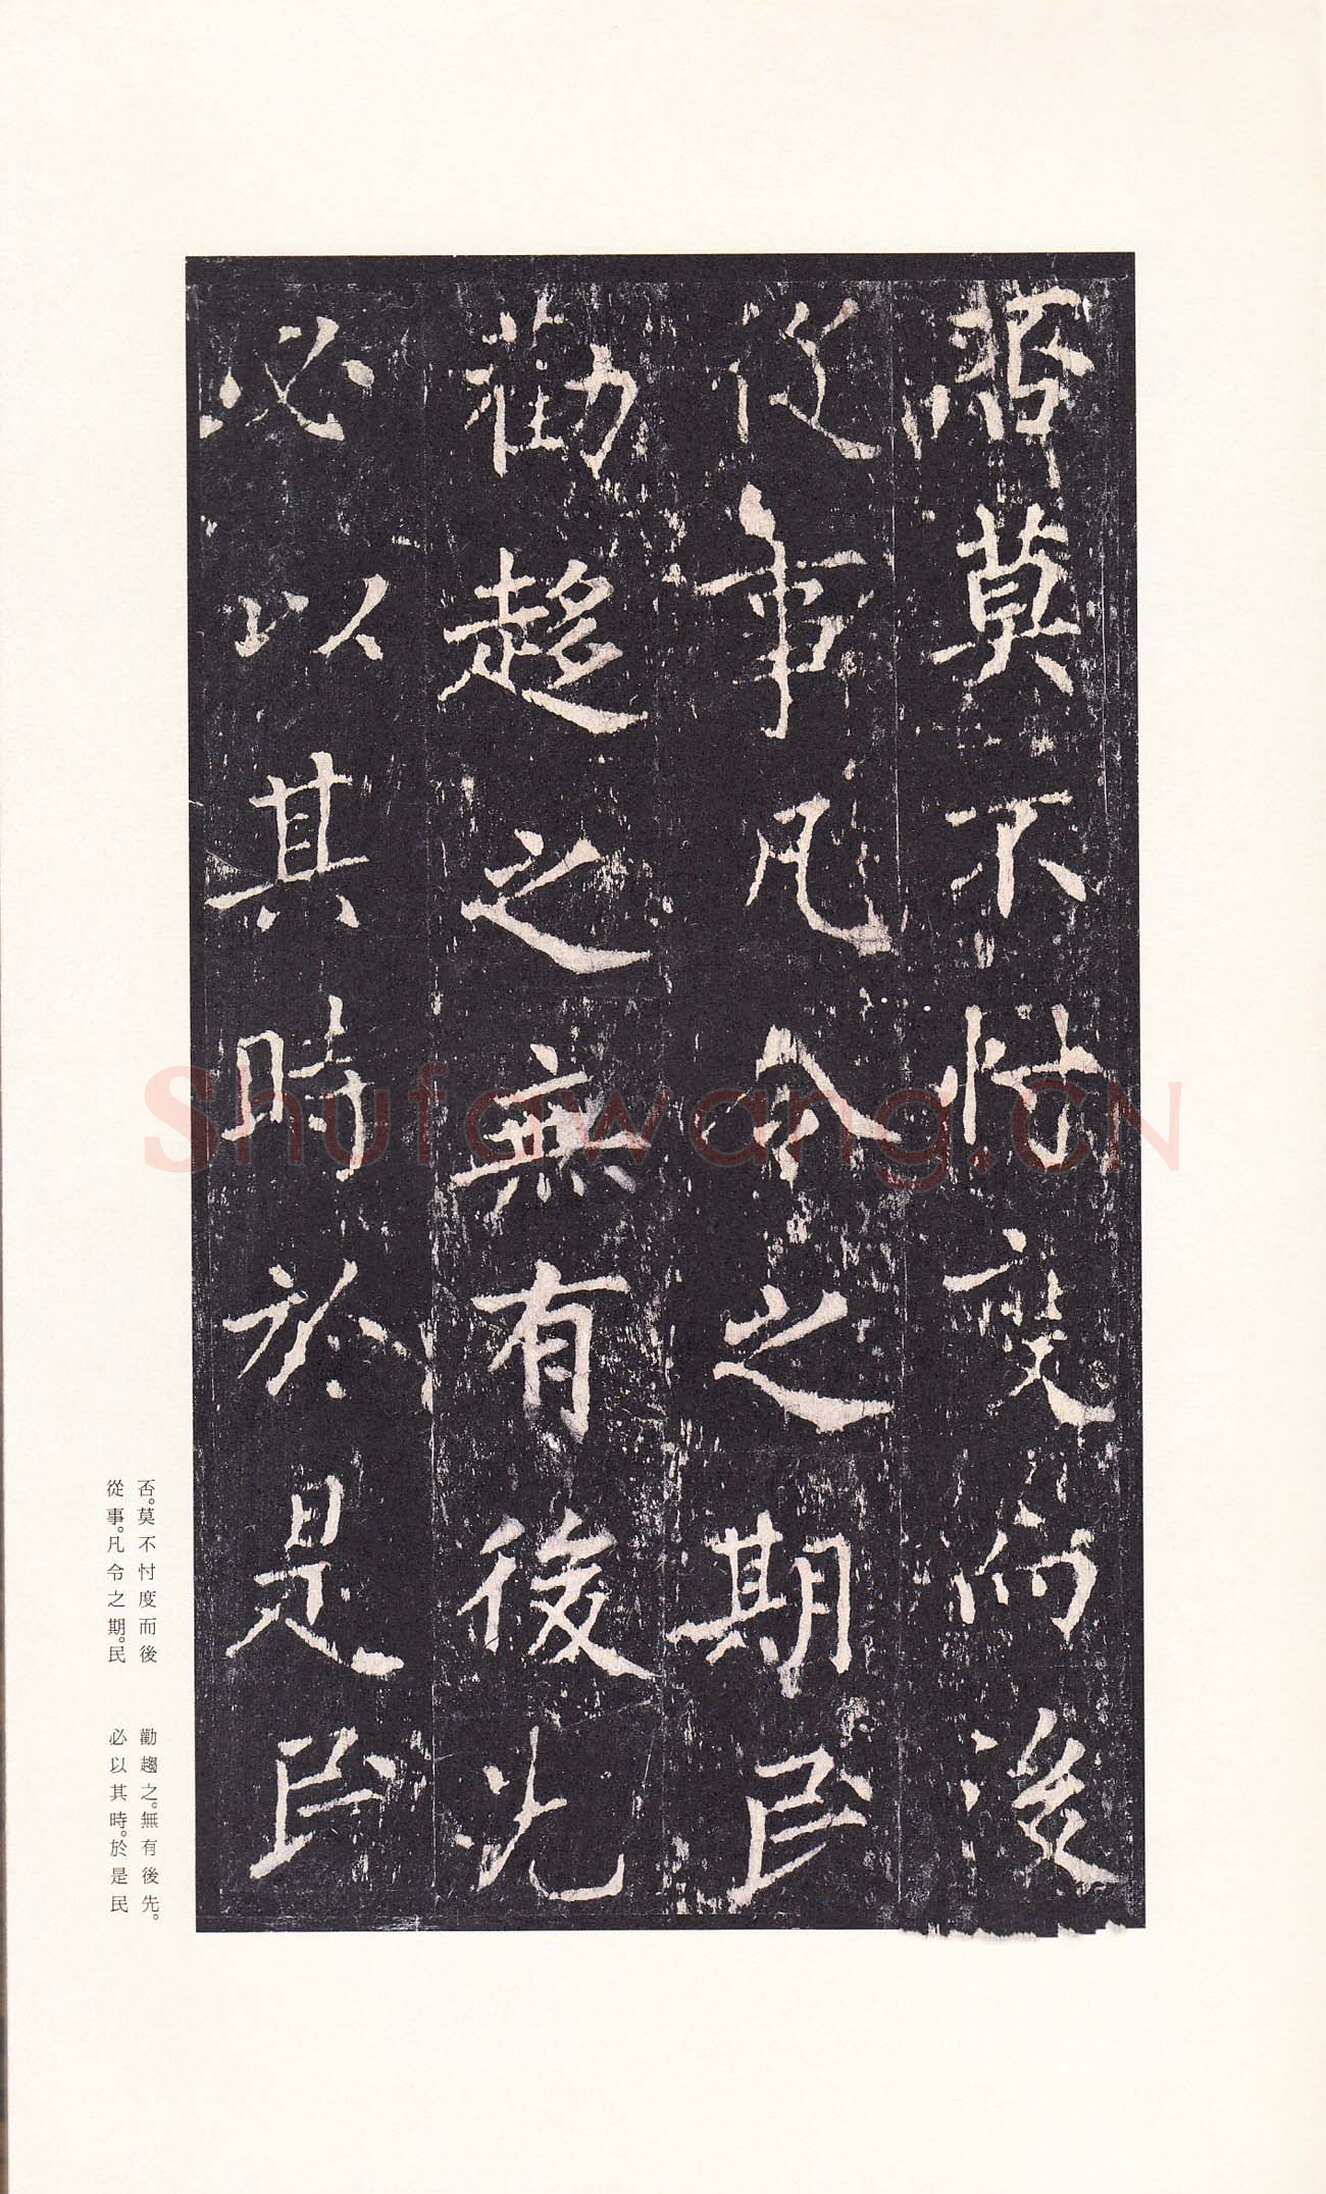 否莫不忖度而後
從事凡令之期民
勸趨之無有後先
必以其時於是民
否。莫不忖度而後
從事。凡令之期。民
勸趨之。無有後先。
必以其時。於是民
Shufawang.CN